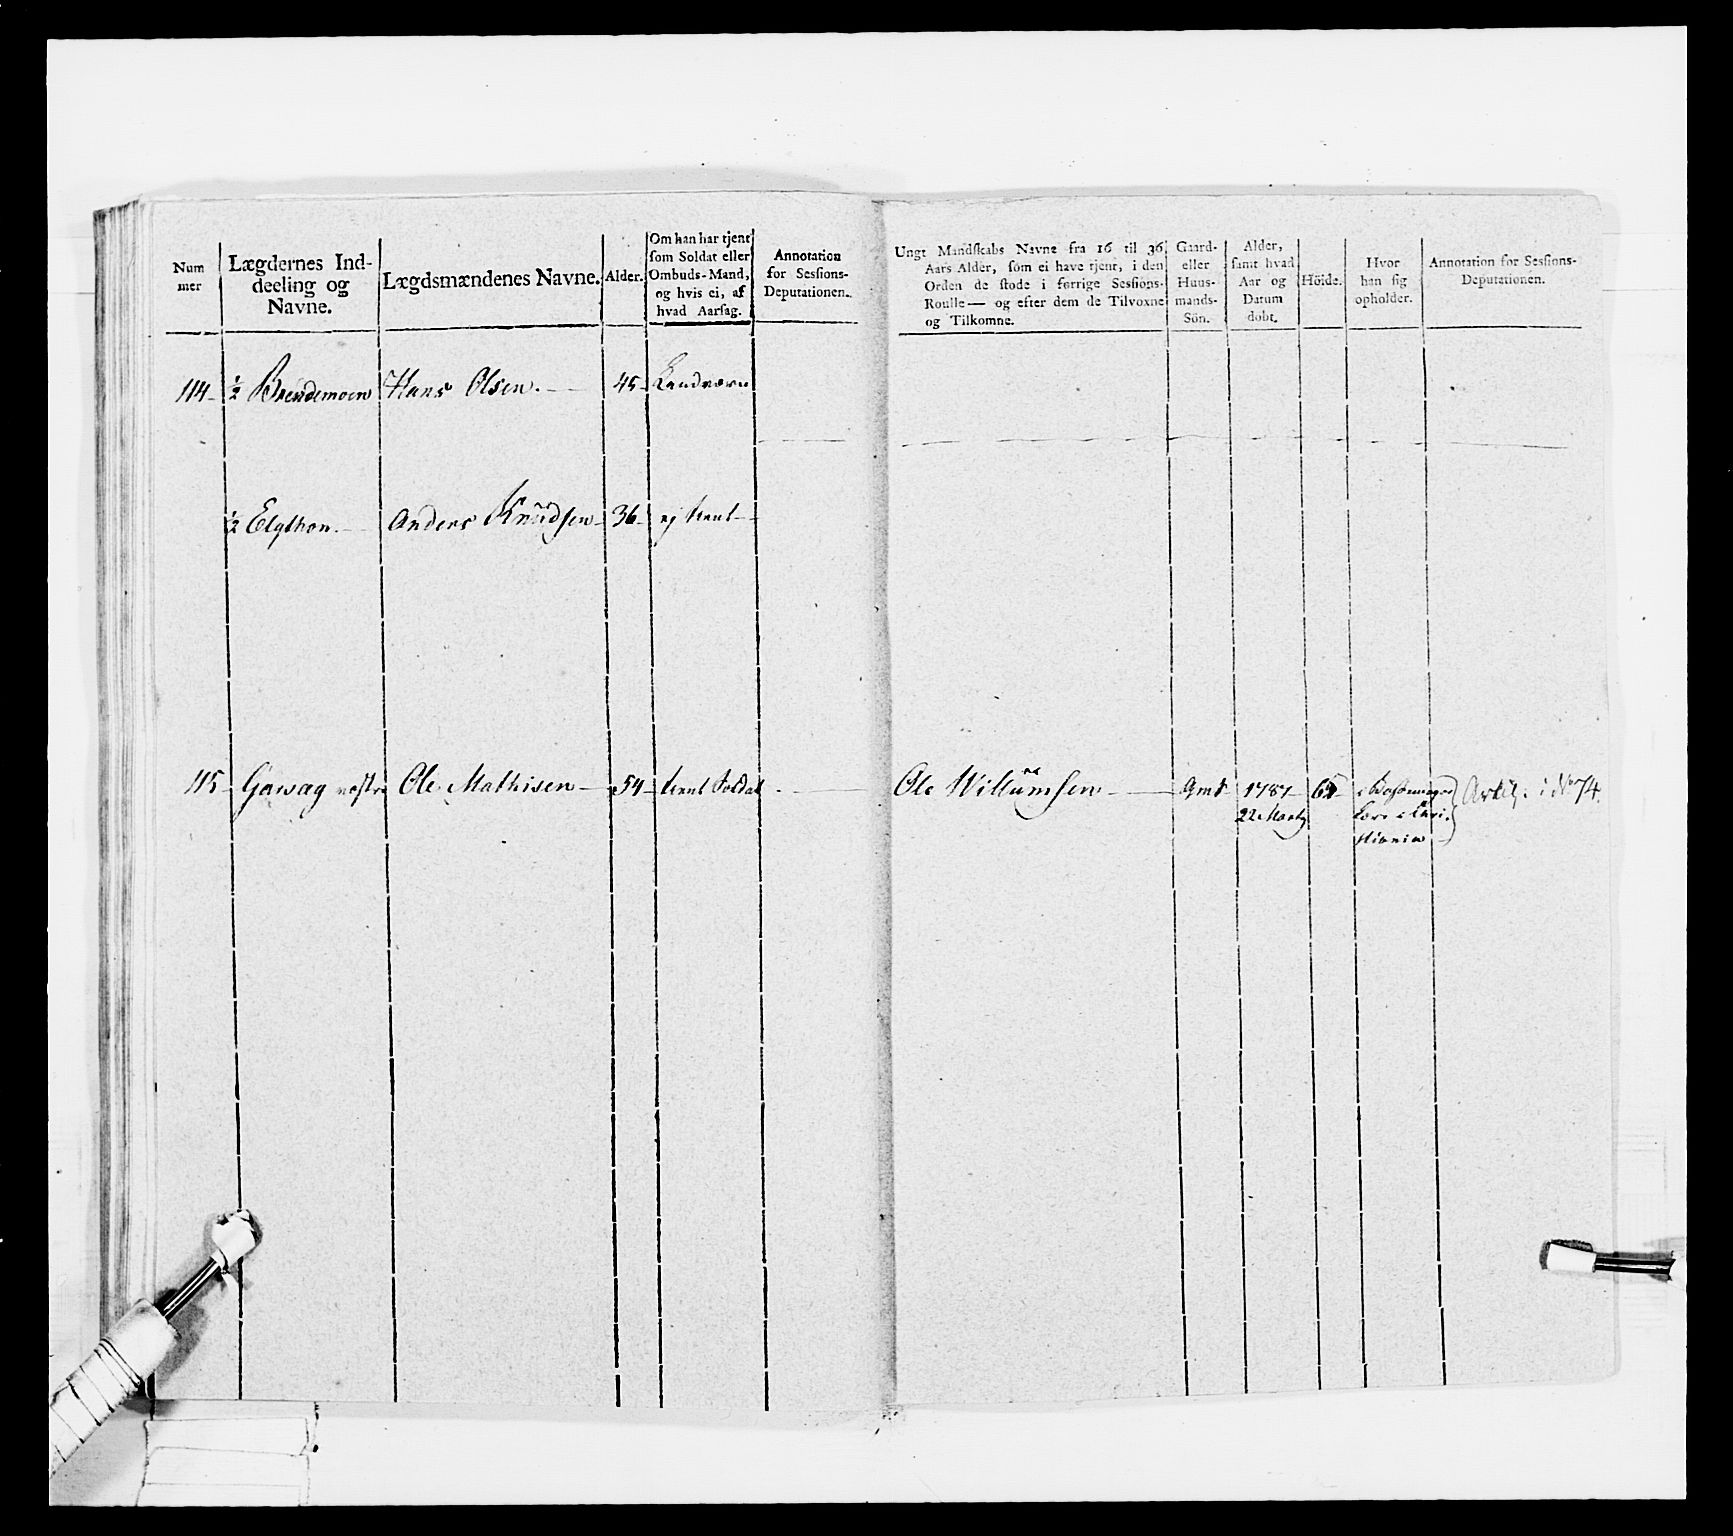 Num
mer
Lægdernes Ind-
deeling og
Navne.
Lægdsmændenes Navne.
Alder.
Om han har tjent
som Soldat eller
Ombuds-Mand,
og hvis ei, af
hvad Aarsag.
Annotation
for Sessions-
Deputationen.
Ungt Mandskabs Navne fra 16 til 36
Aars Alder, som ei have tjent, i den
Orden de stode i forrige Sessions-
Roulle — og efter dem de Tilvoxne
og Tilkomne.
Gaard-
eller
Huus-
mands-
Sön.
Alder,
samt hvad
Aar og
Datum
dobt.
Höide.
Hvor
han sig
opholder.
Annotation for Sessions-
Deputationen.
114- ½ Brendemoen Hans Olsen. — 45- Landværn
½ Elgthon. — Anders Knudsen - 36- ej tient —
115- Garvag vestre Ole Mathisen — 54- tient Soldat - —
Ole Willumsen - — Gmds 1787 i Artil. i No 74.
22 Martz Lære i Chri-
stiania